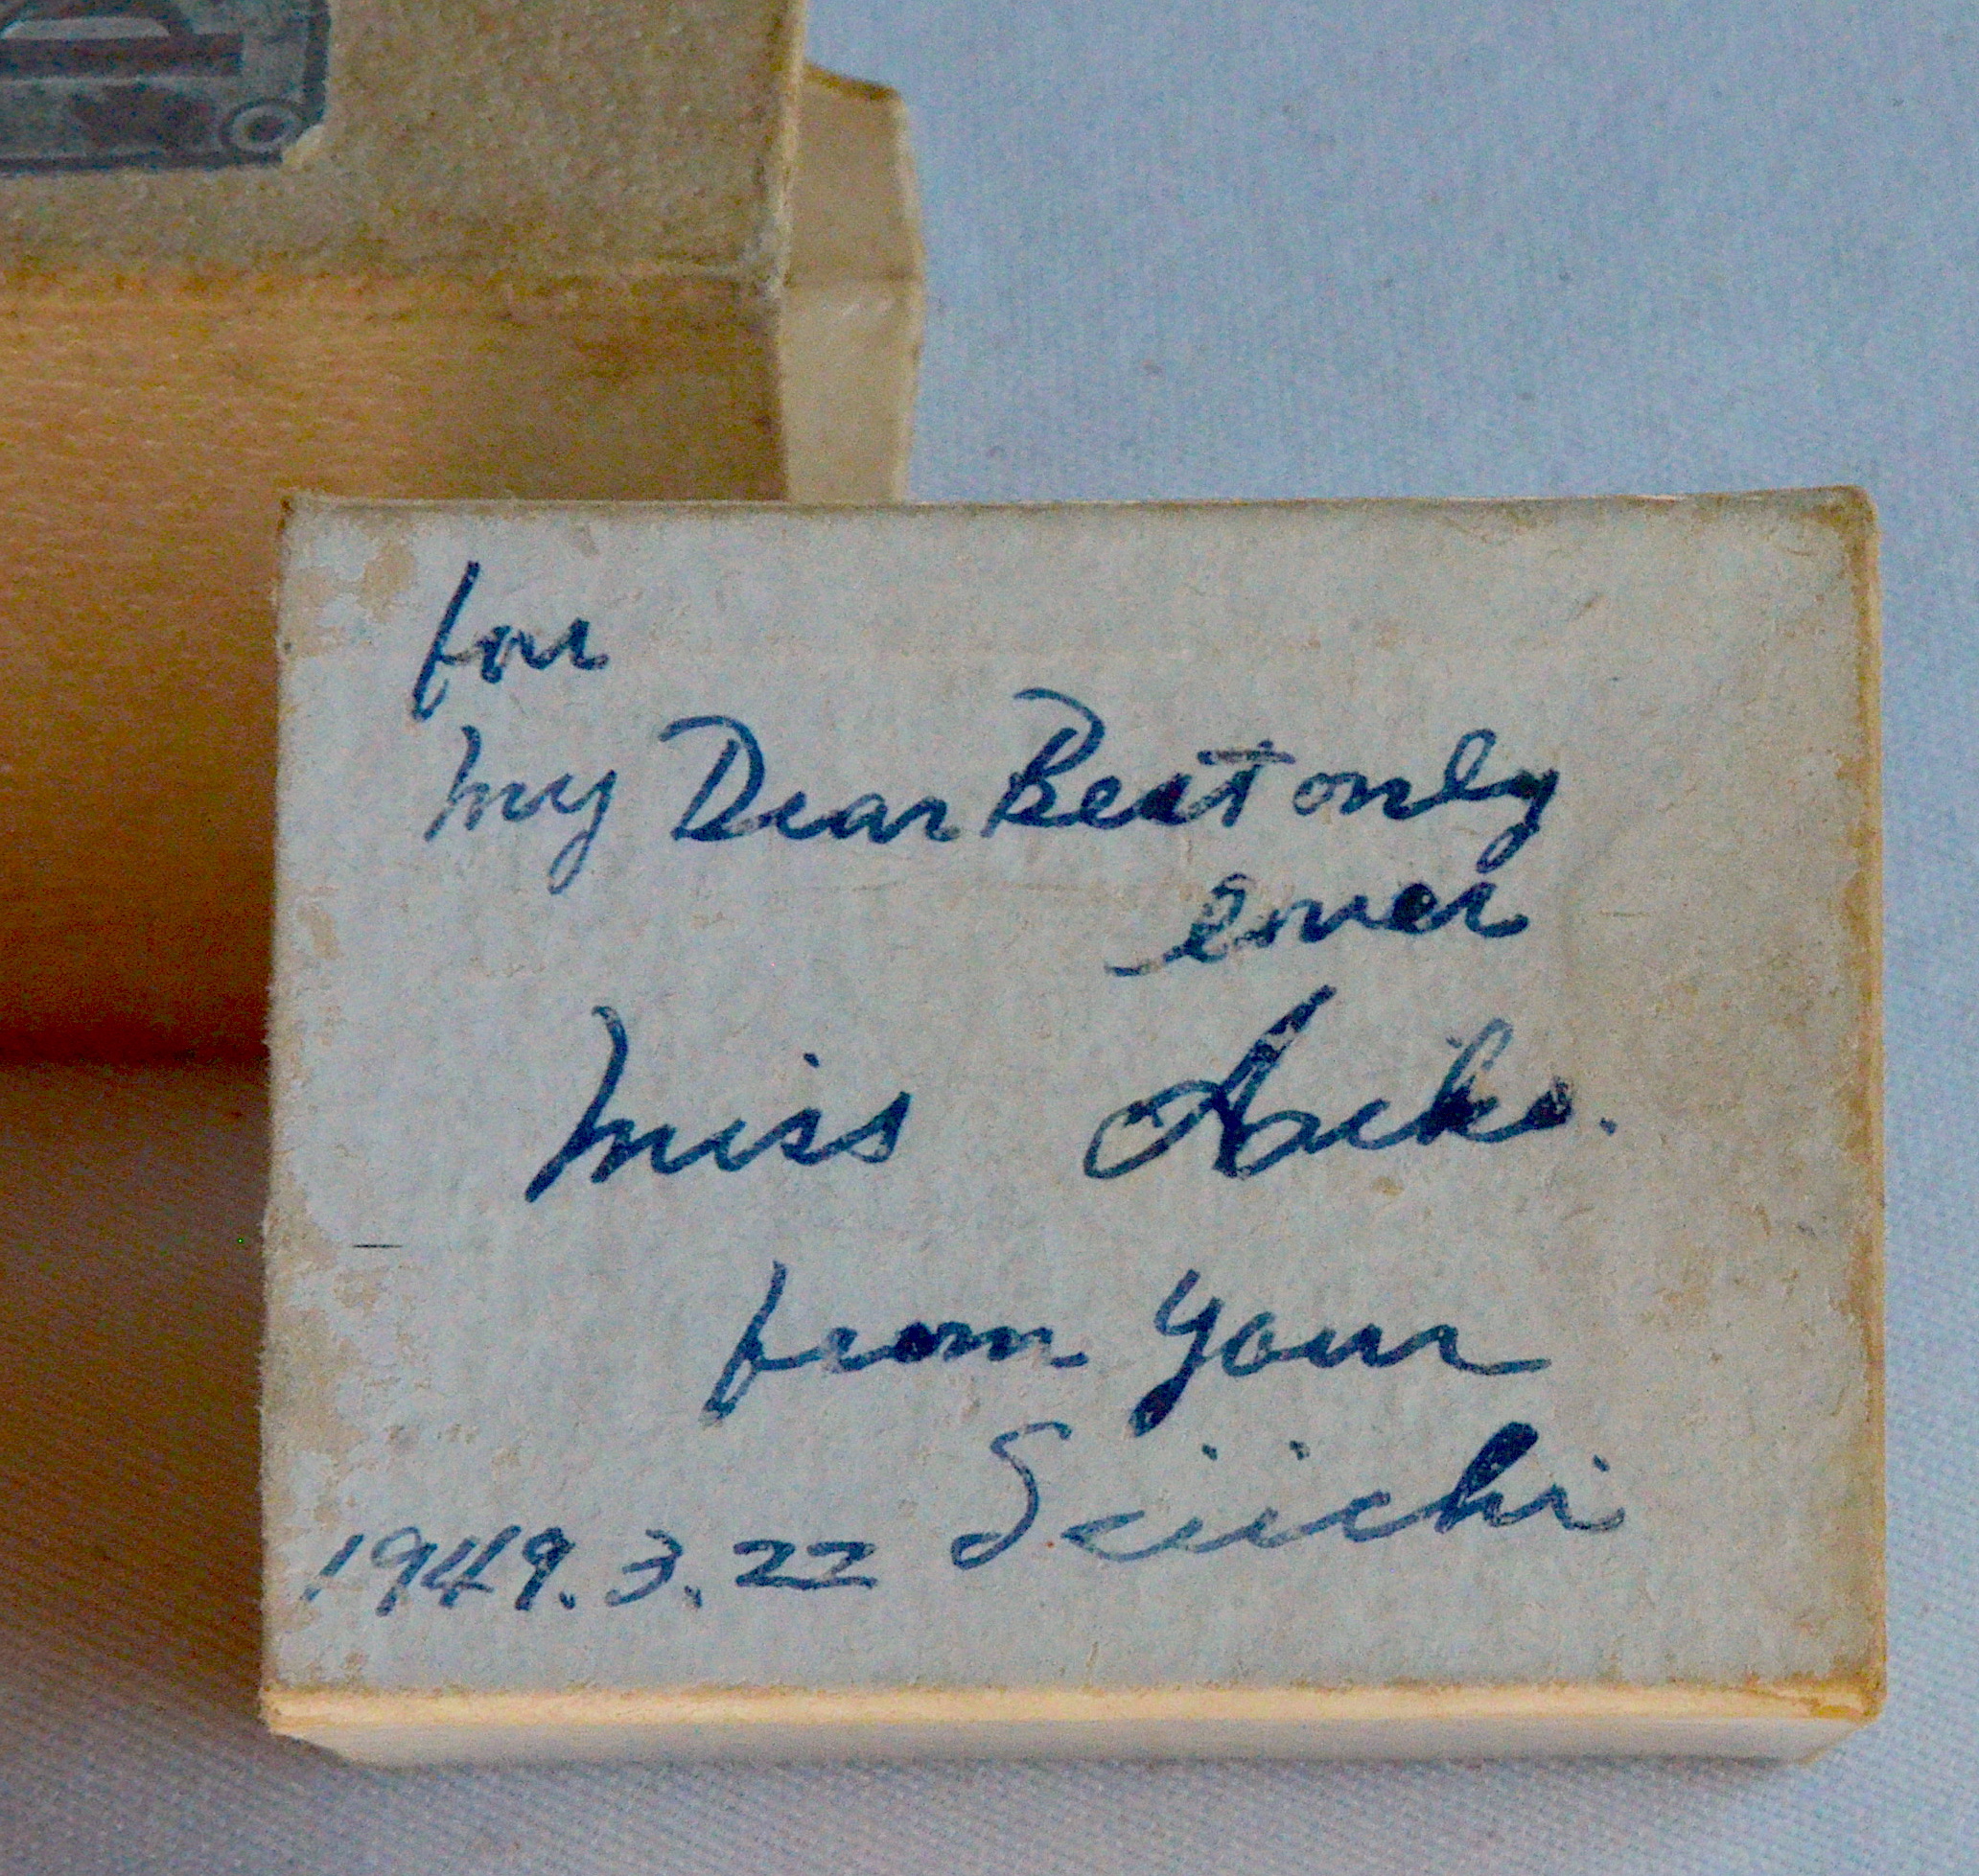 for
my Dear Best only
lover
Miss Aiko.
from your
Seiichi
1949.3.22